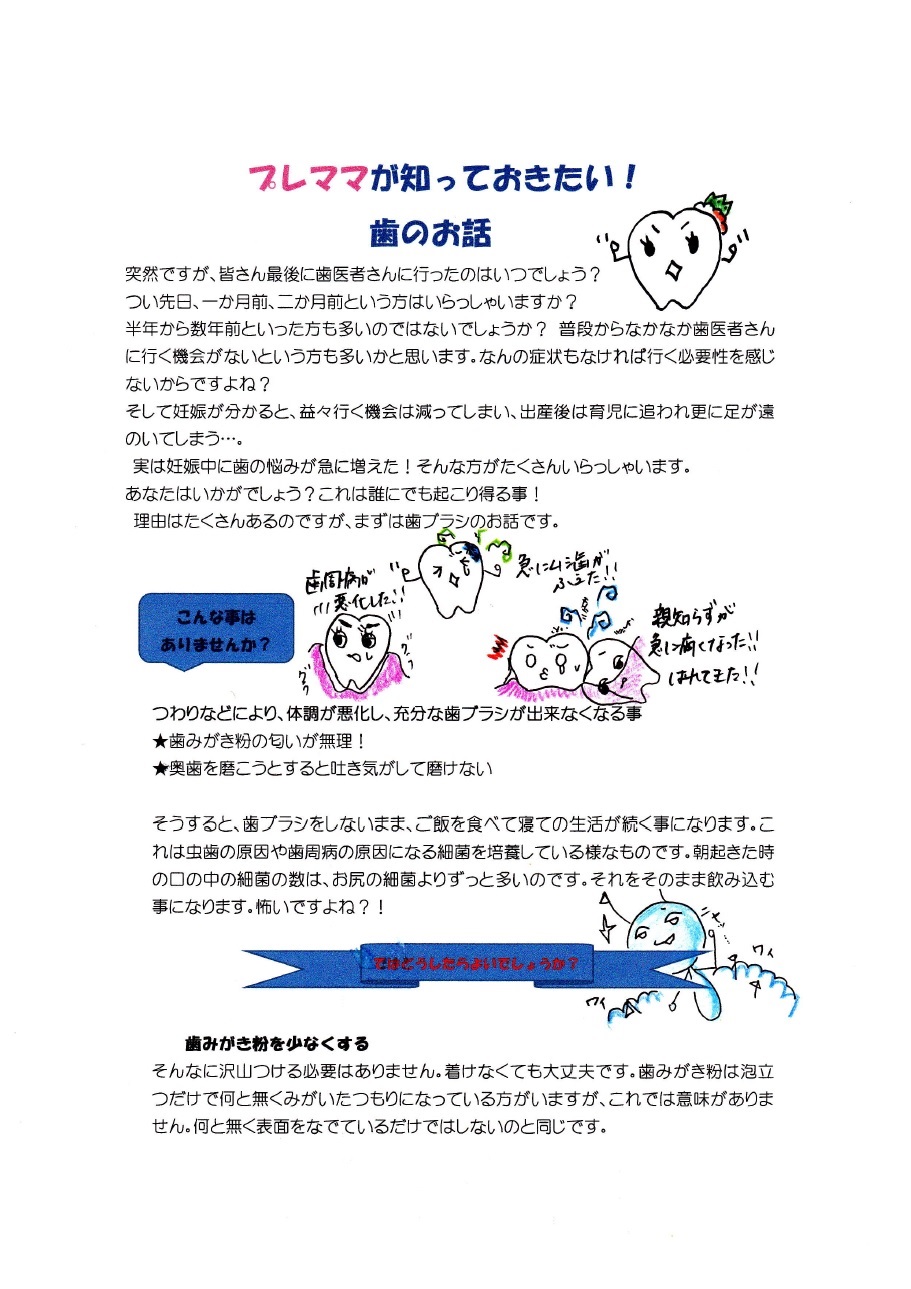 プレママが知っておきたい！
歯のお話
突然ですが、皆さん最後に歯医者さんに行ったのはいつでしょう？
つい先日、一か月前、二か月前という方はいらっしゃいますか？
半年から数年前といった方も多いのではないでしょうか？ 普段からなかなか歯医者さん
に行く機会がないという方も多いかと思います。なんの症状もなければ行く必要性を感じ
ないからですよね？
そして妊娠が分かると、益々行く機会は減ってしまい、出産後は育児に追われ更に足が遠
のいてしまう…。
実は妊娠中に歯の悩みが急に増えた！そんな方がたくさんいらっしゃいます。
あなたはいかがでしょう？これは誰にでも起こり得る事！
理由はたくさんあるのですが、まずは歯ブラシのお話です。
こんな事は
ありませんか？
歯周病が
悪化した!!
グラ
グラ
急にムシ歯が
ふえた!!
親知らずが
急に痛くなった!!
はれてきた!!
つわりなどにより、体調が悪化し、充分な歯ブラシが出来なくなる事
★歯みがき粉の匂いが無理！
★奥歯を磨こうとすると吐き気がして磨けない
そうすると、歯ブラシをしないまま、ご飯を食べて寝ての生活が続く事になります。こ
れは虫歯の原因や歯周病の原因になる細菌を培養している様なものです。朝起きた時
の口の中の細菌の数は、お尻の細菌よりずっと多いのです。それをそのまま飲み込む
事になります。怖いですよね？！
ではどうしたらよいでしょうか？
ワイ
ワイ
歯みがき粉を少なくする
そんなに沢山つける必要はありません。着けなくても大丈夫です。歯みがき粉は泡立
つだけで何と無くみがいたつもりになっている方がいますが、これでは意味がありま
せん。何と無く表面をなでているだけではしないのと同じです。